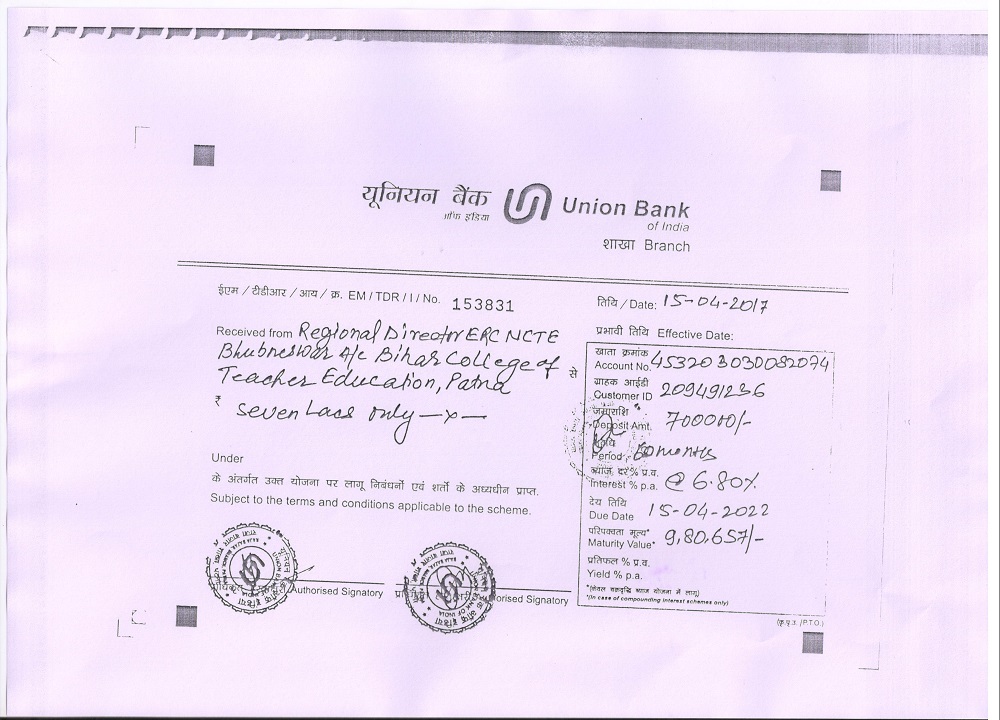 यूनियन बैंक
ऑफ इंडिया
Union Bank
of India
शाखा Branch
ईएम / टीडीआर / आय / क्र. EM / TDR / I / No. 153831
तिथि / Date: 15-04-2017
Received from Regional Director ERC NCTE
Bhubneswar A/c Bihar College of
Teacher Education, Patna
से
₹ Seven Lacs only —x—
Under
के अंतर्गत उक्त योजना पर लागू निबंधनों एवं शर्तो के अध्यधीन प्राप्त.
Subject to the terms and conditions applicable to the scheme.
Authorised Signatory
Authorised Signatory
प्रभावी तिथि Effective Date:
खाता क्रमांक
Account No. 453203030082074
ग्राहक आईडी
Customer ID 209491236
जमाराशि
Deposit Amt. 700000/-
Period 60 months
ब्याज दर% प्र.व.
Interest % p.a. @ 6.80%
देय तिथि
Due Date 15-04-2022
परिपक्वता मूल्य*
Maturity Value* 9,80,657/-
प्रतिफल % प्र.व.
Yield % p.a.
*(केवल चक्रवृद्धि ब्याज योजना में लागू)
*(In case of compounding interest schemes only)
(कृ.पृ.उ. /P.T.O.)